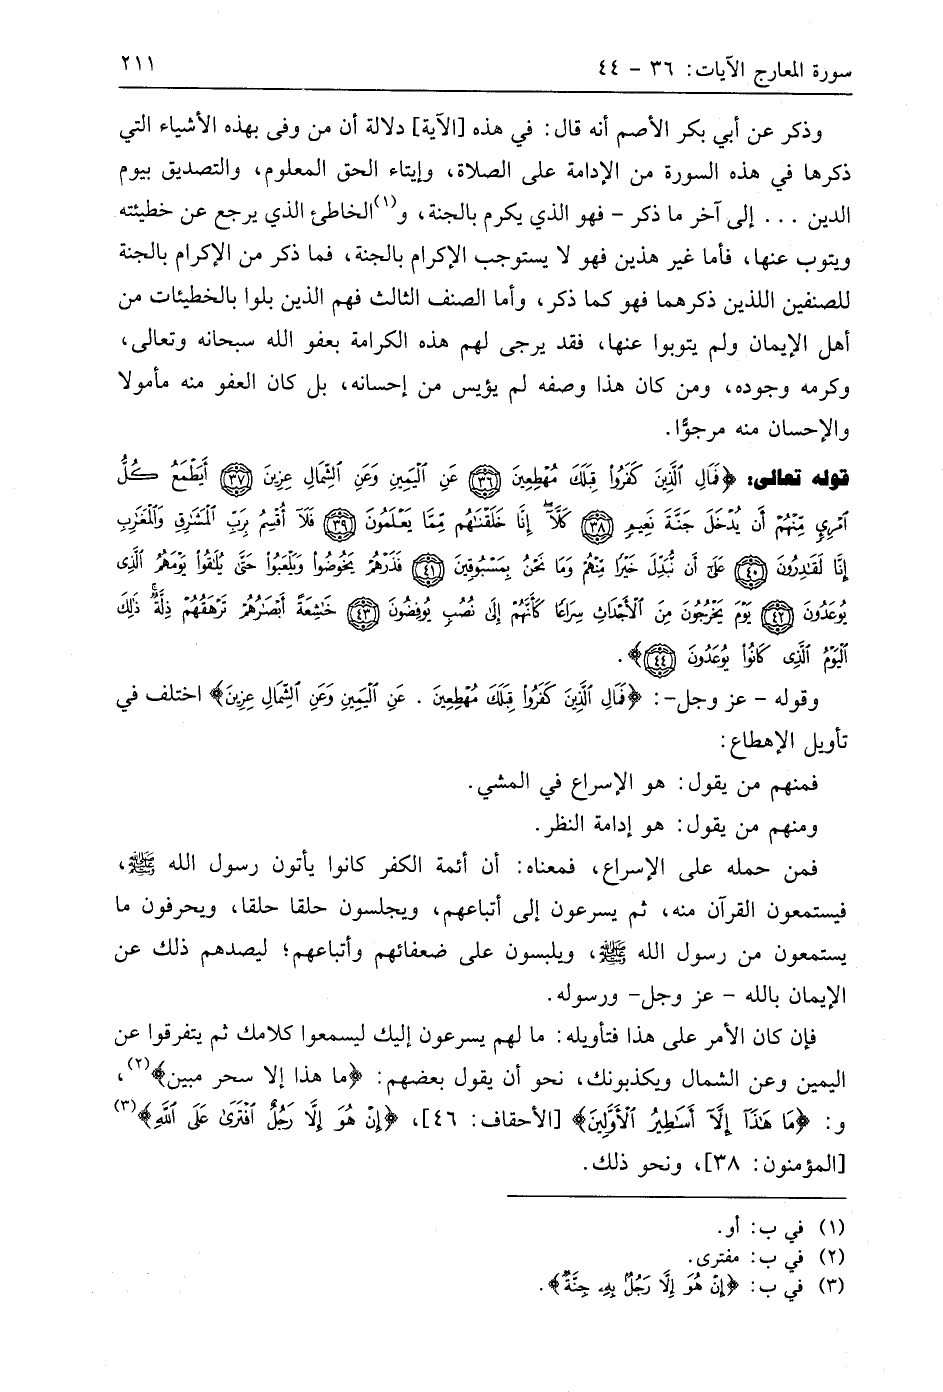 سورة المعارج الآيات: ٣٦ - ٤٤
٢١١
وذكر عن أبي بكر الأصم أنه قال: في هذه [الآية] دلالة أن من وفى بهذه الأشياء التي
ذكرها في هذه السورة من الإدامة على الصلاة، وإيتاء الحق المعلوم، والتصديق بيوم
الدين ... إلى آخر ما ذكر - فهو الذي يكرم بالجنة، و(١)الخاطئ الذي يرجع عن خطيئته
ويتوب عنها، فأما غير هذين فهو لا يستوجب الإكرام بالجنة، فما ذكر من الإكرام بالجنة
للصنفين اللذين ذكرهما فهو كما ذكر، وأما الصنف الثالث فهم الذين بلوا بالخطيئات من
أهل الإيمان ولم يتوبوا عنها، فقد يرجى لهم هذه الكرامة بعفو الله سبحانه وتعالى،
وكرمه وجوده، ومن كان هذا وصفه لم يؤيس من إحسانه، بل كان العفو منه مأمولا
والإحسان منه مرجوًّا.
قوله تعالى: ﴿فَالِ ٱلَّذِينَ كَفَرُوا۟ قِبَلَكَ مُهْطِعِينَ ٣٦ عَنِ ٱلْيَمِينِ وَعَنِ ٱلشِّمَالِ عِزِينَ ٣٧ أَيَطْمَعُ كُلُّ
ٱمْرِئٍ مِّنْهُمْ أَن يُدْخَلَ جَنَّةَ نَعِيمٍ ٣٨ كَلَّآ إِنَّا خَلَقْنَٰهُم مِّمَّا يَعْلَمُونَ ٣٩ فَلَآ أُقْسِمُ بِرَبِّ ٱلْمَشَٰرِقِ وَٱلْمَغَٰرِبِ
إِنَّا لَقَٰدِرُونَ ٤٠ عَلَىٰٓ أَن نُّبَدِّلَ خَيْرًا مِّنْهُمْ وَمَا نَحْنُ بِمَسْبُوقِينَ ٤١ فَذَرْهُمْ يَخُوضُوا۟ وَيَلْعَبُوا۟ حَتَّىٰ يُلَٰقُوا۟ يَوْمَهُمُ ٱلَّذِى
يُوعَدُونَ ٤٢ يَوْمَ يَخْرُجُونَ مِنَ ٱلْأَجْدَاثِ سِرَاعًا كَأَنَّهُمْ إِلَىٰ نُصُبٍ يُوفِضُونَ ٤٣ خَٰشِعَةً أَبْصَٰرُهُمْ تَرْهَقُهُمْ ذِلَّةٌ ۚ ذَٰلِكَ
ٱلْيَوْمُ ٱلَّذِى كَانُوا۟ يُوعَدُونَ ٤٤﴾.
وقوله - عز وجل-: ﴿فَالِ ٱلَّذِينَ كَفَرُوا۟ قِبَلَكَ مُهْطِعِينَ . عَنِ ٱلْيَمِينِ وَعَنِ ٱلشِّمَالِ عِزِينَ﴾ اختلف في
تأويل الإهطاع:
فمنهم من يقول: هو الإسراع في المشي.
ومنهم من يقول: هو إدامة النظر.
فمن حمله على الإسراع، فمعناه: أن أئمة الكفر كانوا يأتون رسول الله ﷺ،
فيستمعون القرآن منه، ثم يسرعون إلى أتباعهم، ويجلسون حلقا حلقا، ويحرفون ما
يستمعون من رسول الله ﷺ، ويلبسون على ضعفائهم وأتباعهم؛ ليصدهم ذلك عن
الإيمان بالله - عز وجل- ورسوله.
فإن كان الأمر على هذا فتأويله: ما لهم يسرعون إليك ليسمعوا كلامك ثم يتفرقوا عن
اليمين وعن الشمال ويكذبونك، نحو أن يقول بعضهم: ﴿ما هذا إلا سحر مبين﴾(٢)،
و: ﴿مَا هَٰذَآ إِلَّآ أَسَٰطِيرُ ٱلْأَوَّلِينَ﴾ [الأحقاف: ٤٦]، ﴿إِنْ هُوَ إِلَّا رَجُلٌ ٱفْتَرَىٰ عَلَى ٱللَّهِ﴾(٣)
[المؤمنون: ٣٨]، ونحو ذلك.
(١) في ب: أو.
(٢) في ب: مفترى.
(٣) في ب: ﴿إِنْ هُوَ إِلَّا رَجُلٌۢ بِهِۦ جِنَّةٌ﴾.